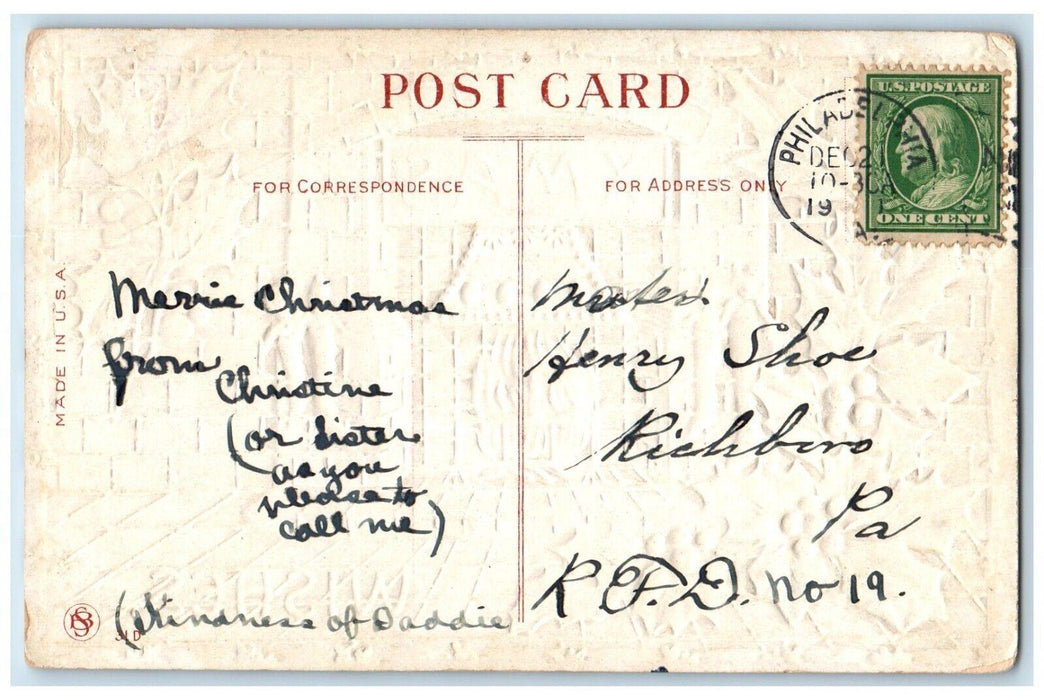 POST CARD
FOR CORRESPONDENCE
FOR ADDRESS ONLY
U.S. POSTAGE
ONE CENT
PHILADELPHIA
DEC 2
10-30A
19
MADE IN U.S.A.
Merrie Christmas
from
Christine
(or Sister
as you
please to
call me)
(Kindness of Daddie
Master
Henry Shoe
Richboro
Pa
R.F.D. No 19.
BS
31D